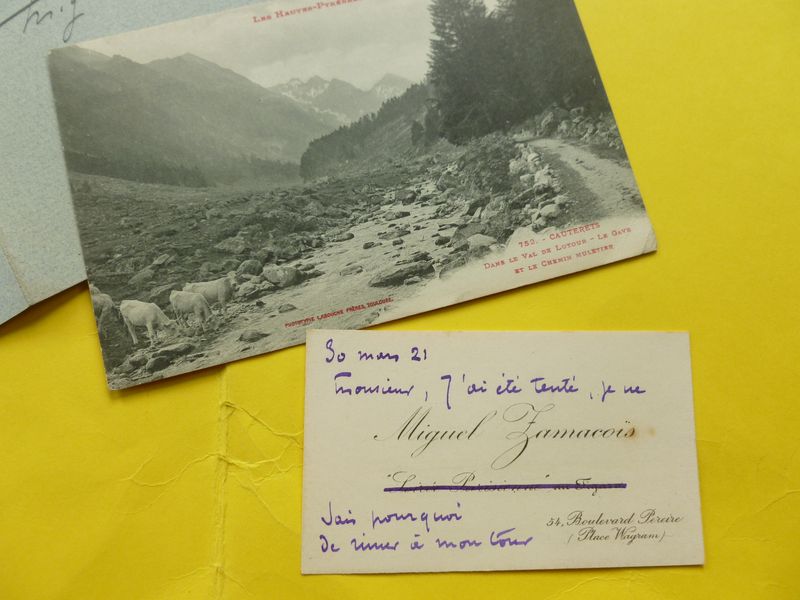 Les Hautes-Pyréné
752. - CAUTERETS
Dans le Val de Lutour - Le Gave
et le Chemin Muletier
Phototypie Labouche Frères, Toulouse
30 mars 21
Monsieur, J'ai été tenté, je ne
Miguel Zamacoïs
au Figaro
sais pourquoi
de rimer à mon tour
54, Boulevard Pereire
(Place Wagram)